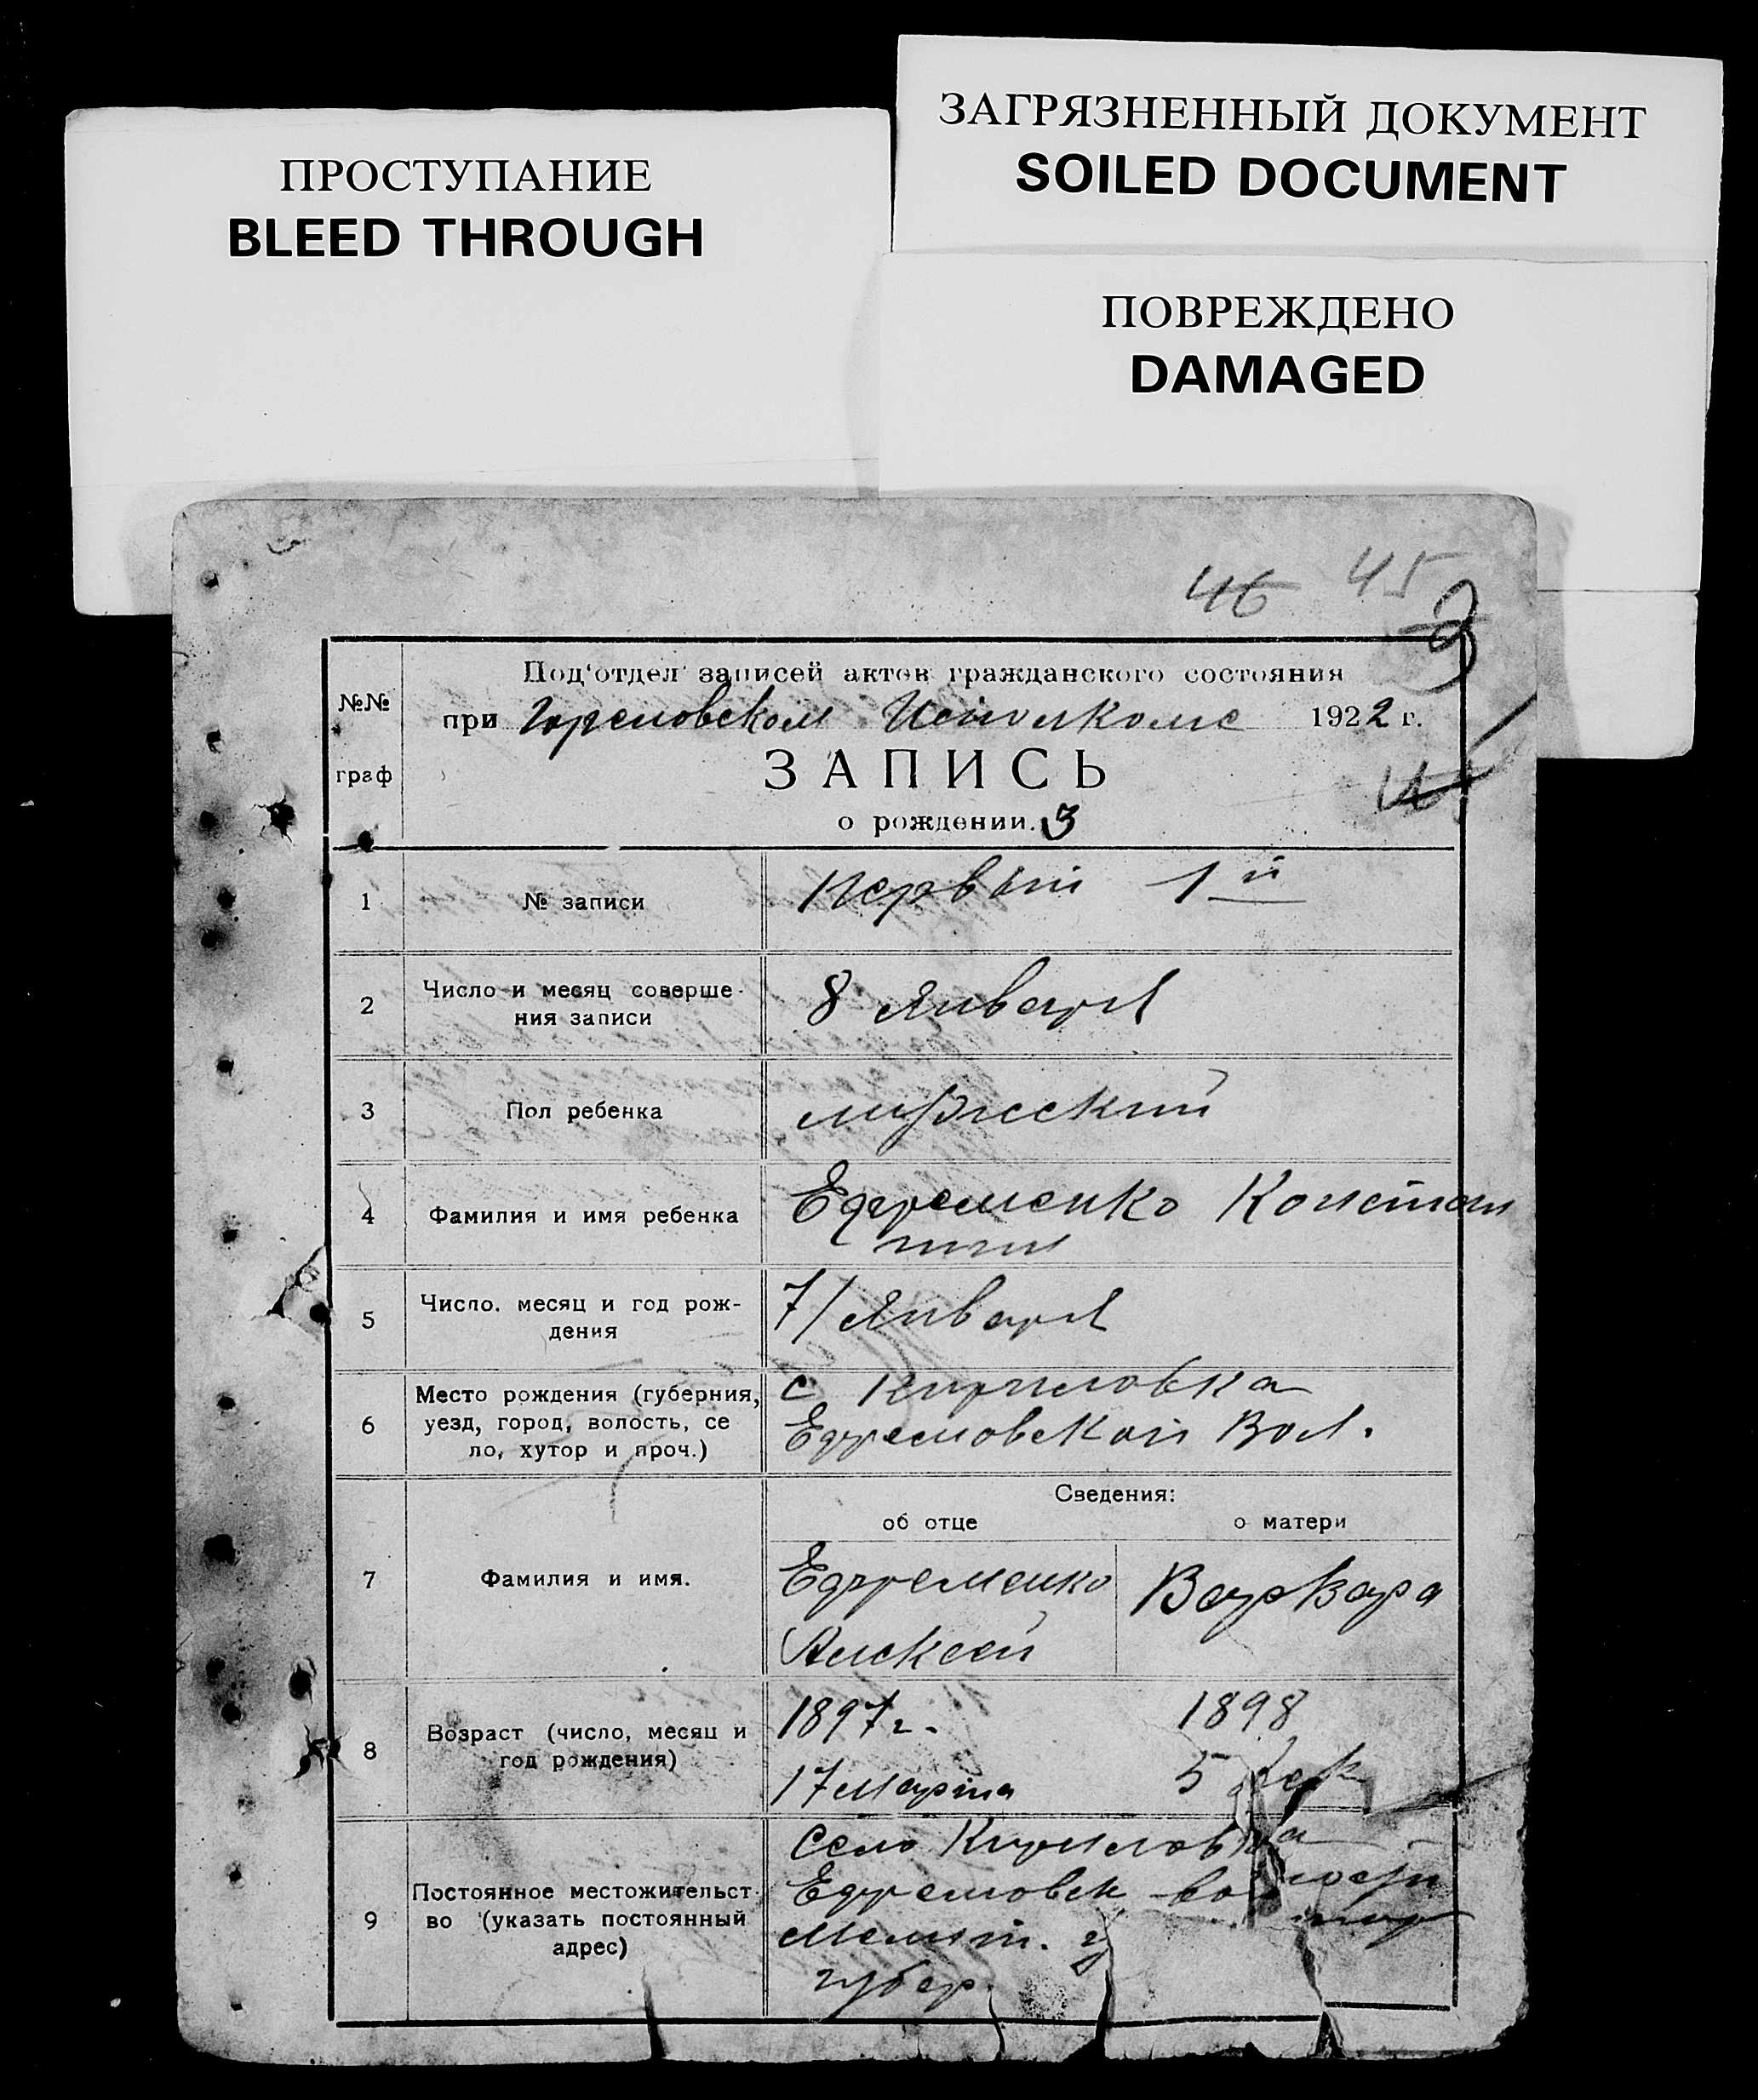 ПРОСТУПАНИЕ
BLEED THROUGH
ЗАГРЯЗНЕННЫЙ ДОКУМЕНТ
SOILED DOCUMENT
ПОВРЕЖДЕНО
DAMAGED
46 45
Под'отдел записей актов гражданского состояния
№№
граф
при Исполкоме 1922 г.
ЗАПИСЬ
о рождении.
1 № записи
Первый 1й
2 Число и месяц соверше-
ния записи
8 Января
3 Пол ребенка
мужский
4 Фамилия и имя ребенка
Ефременко Констан
тин
5 Число. месяц и год рож-
дения
7/Января
6 Место рождения (губерния,
уезд, город, волость, се
ло, хутор и проч.)
с Кириловка
Ефремовской Вол.
Сведения:
об отце о матери
7 Фамилия и имя.
Ефременко Варвара
Алексей
8 Возраст (число, месяц и
год рождения)
1897г. 1898
17 Марта 5
9 Постоянное местожительст-
во (указать постоянный
адрес)
Село Кириловка
Ефремовск волости
Мелит. у
губер.